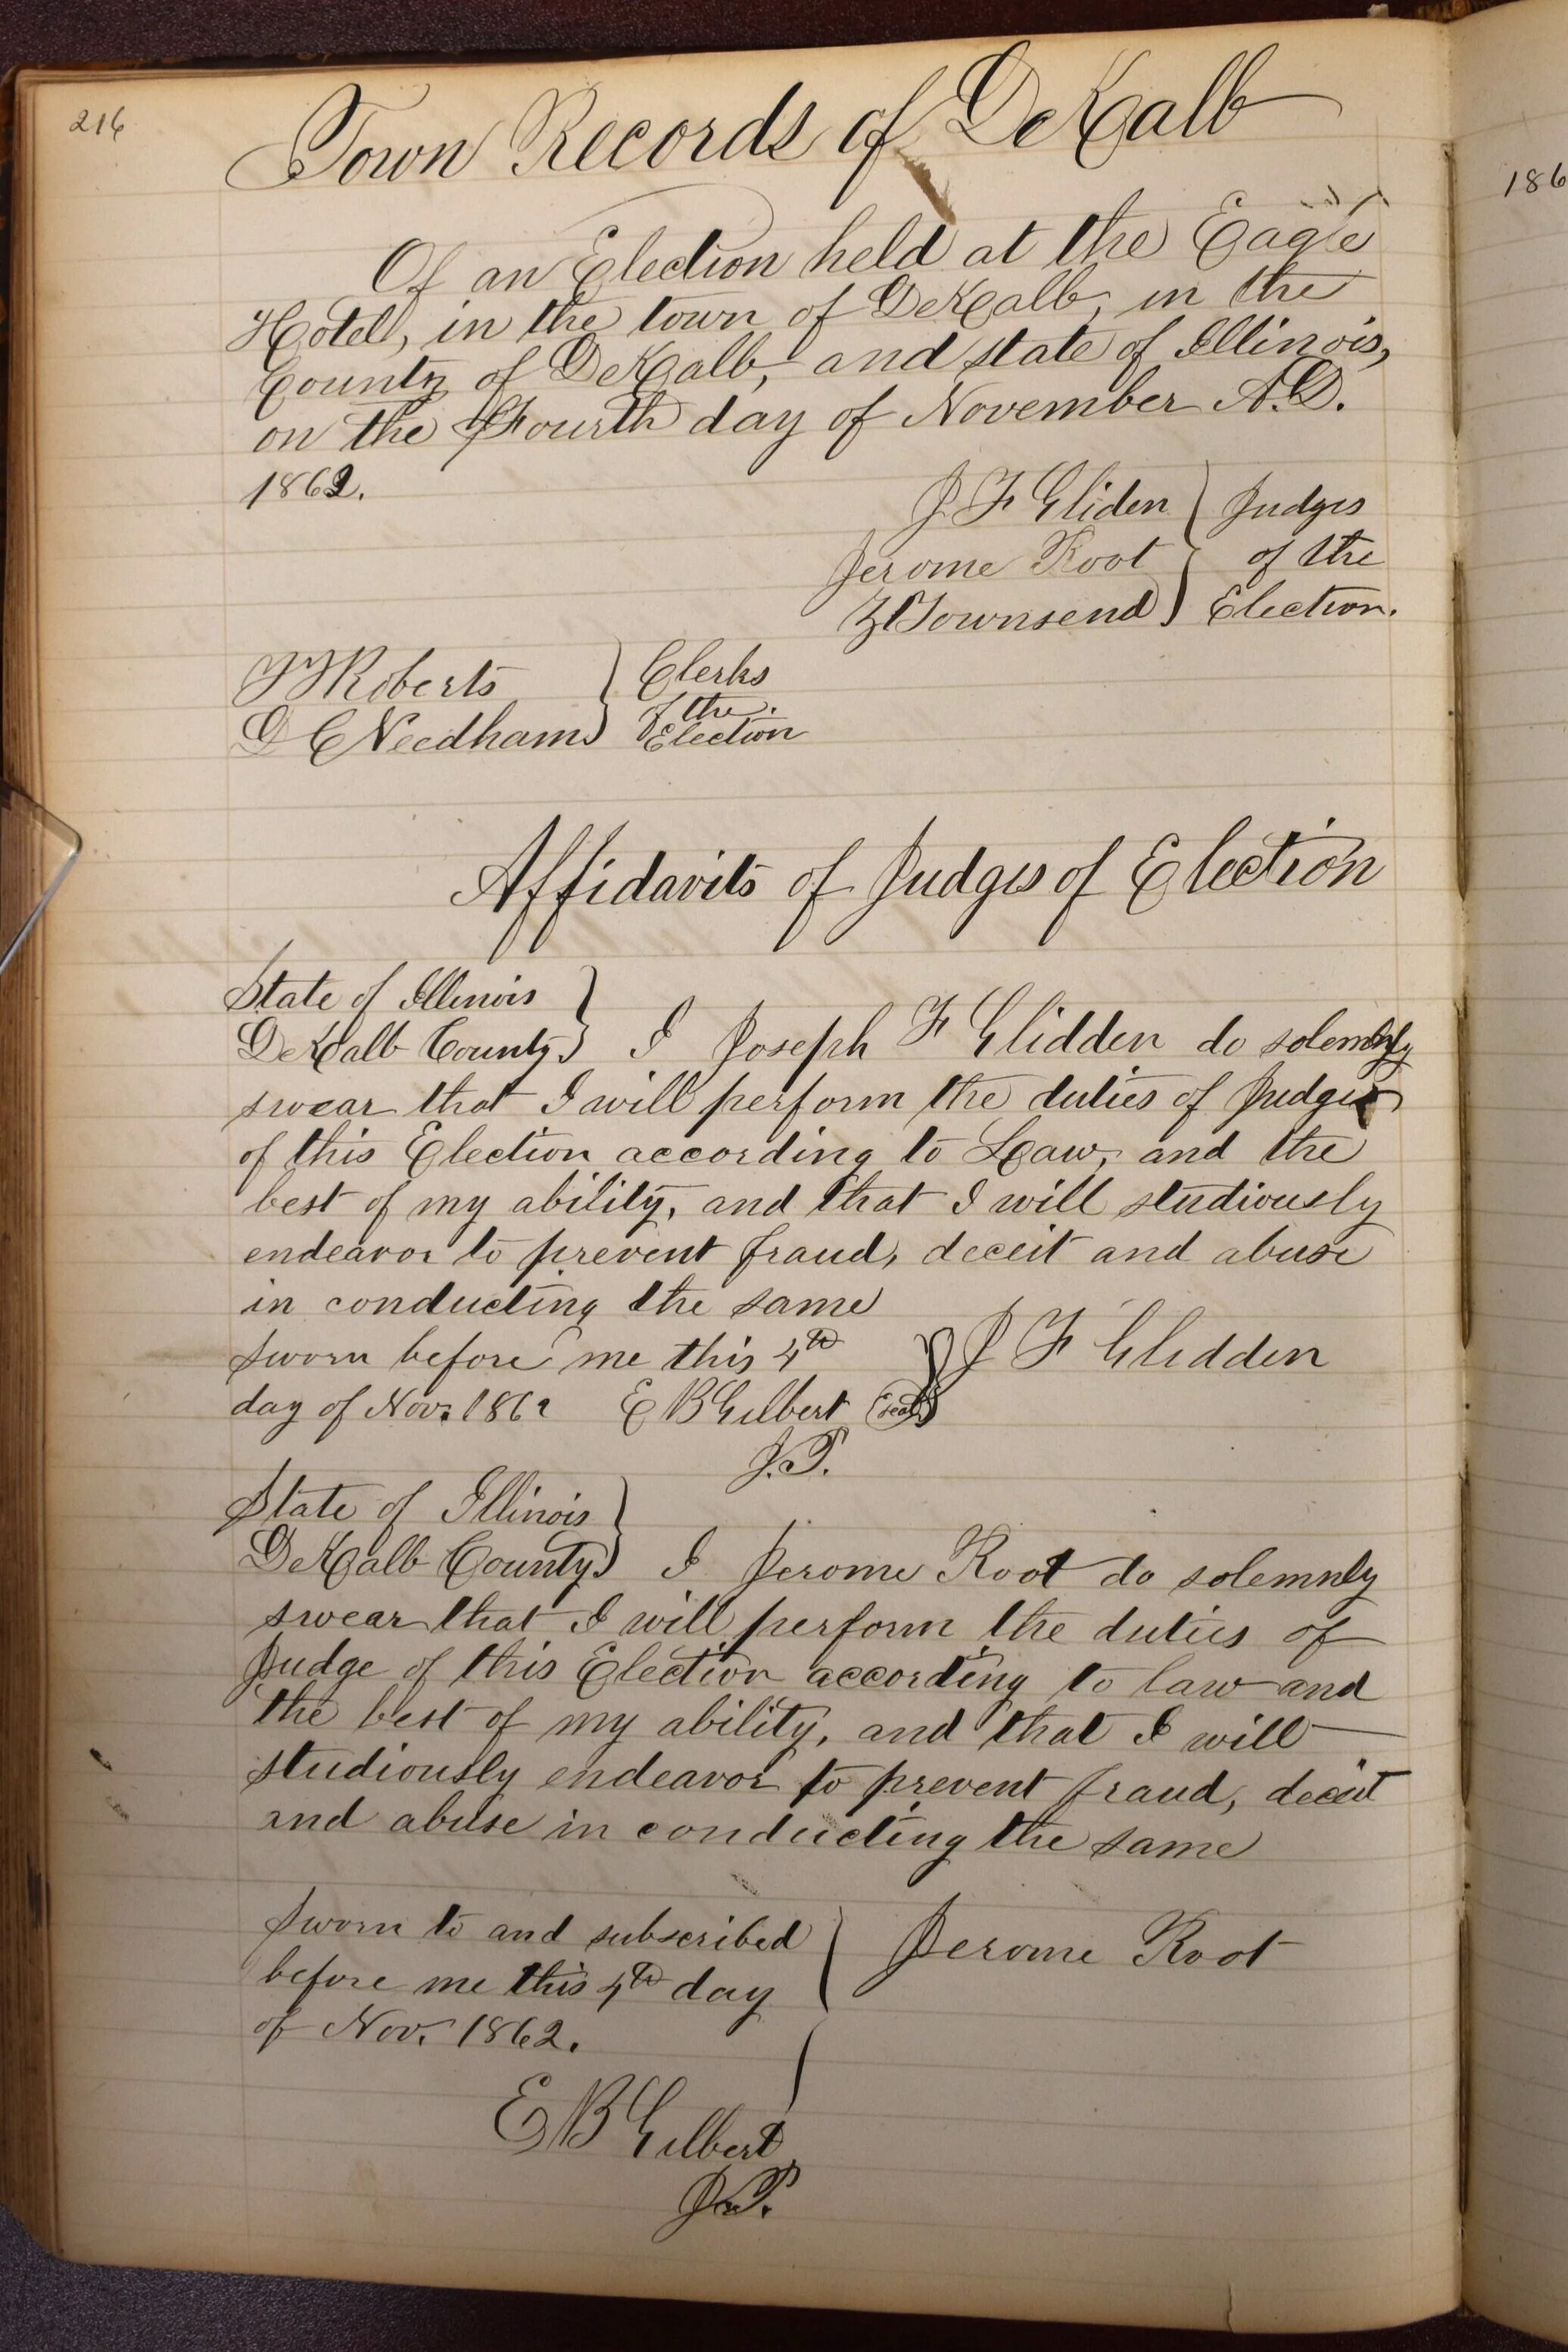 216
Town Records of DeKalb
Of an Election held at the Eagle
Hotell, in the town of DeKalb, in the
County of DeKalb, and state of Illinois,
on the Fourth day of November A.D.
1862.
J F Gliden } Judges
Jerome Root } of the
Z Townsend } Election.
Roberts } Clerks
of the
D C Needham } Election
Affidavits of Judges of Election
State of Illinois }
DeKalb County } I Joseph F Glidden do solemnly
swear that I will perform the duties of Judge
of this Election according to Law, and the
best of my ability, and that I will studiously
endeavor to prevent fraud, deceit and abuse
in conducting the same
Sworn before me this 4th } J F Glidden
day of Nov. 1862 E B Gilbert (Seal)
J.P.
State of Illinois }
DeKalb County } I Jerome Root do solemnly
swear that I will perform the duties of
Judge of this Election according to law and
the best of my ability, and that I will
studiously endeavor to prevent fraud, deceit
and abuse in conducting the same
Sworn to and subscribed } Jerome Root
before me this 4th day
of Nov. 1862.
E B Gilbert
J.P.
186